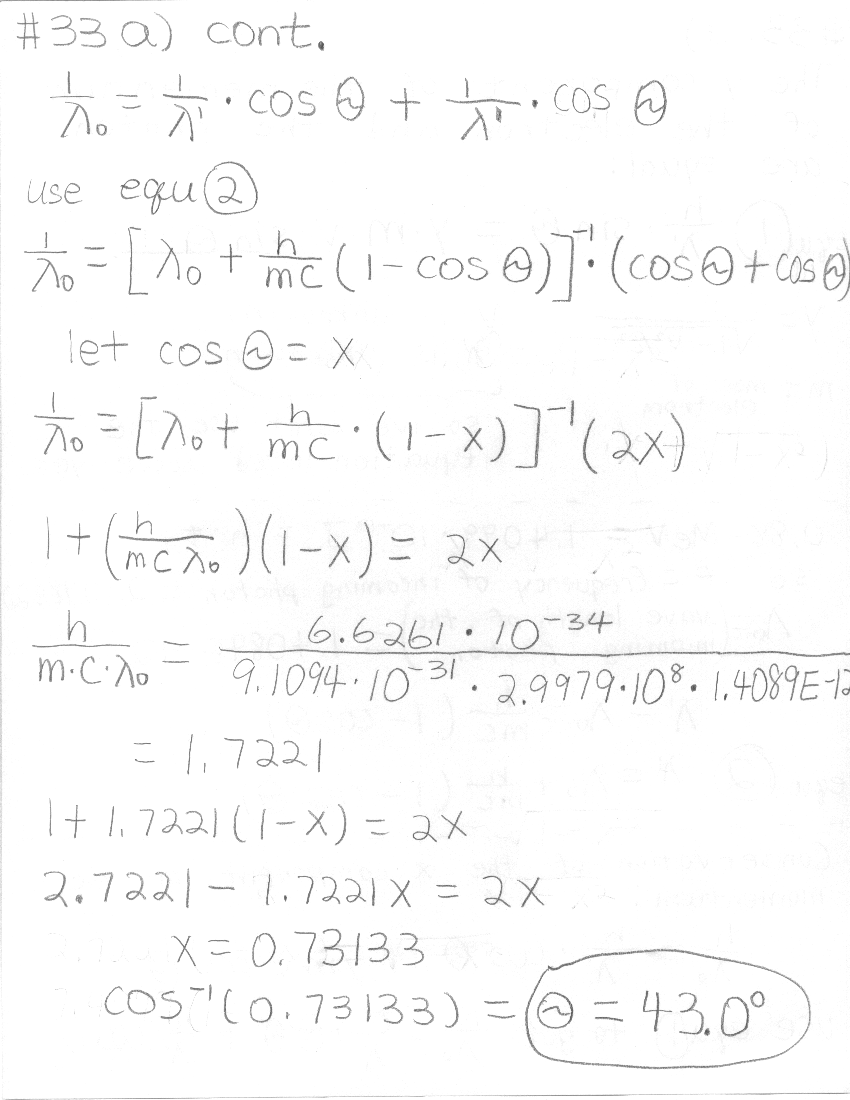 #33 a) cont.
1/λ₀ = 1/λ' · cos θ + 1/λ' · cos θ
use equ ②
1/λ₀ = [λ₀ + h/mc (1 - cos θ)]⁻¹ · (cos θ + cos θ)
let cos θ = x
1/λ₀ = [λ₀ + h/mc · (1 - x)]⁻¹ (2x)
1 + (h/mc λ₀)(1 - x) = 2x
h/m·c·λ₀ = 6.6261 · 10⁻³⁴ / 9.1094 · 10⁻³¹ · 2.9979 · 10⁸ · 1.4089E-12
= 1.7221
1 + 1.7221(1 - x) = 2x
2.7221 - 1.7221x = 2x
x = 0.73133
cos⁻¹(0.73133) = θ = 43.0°